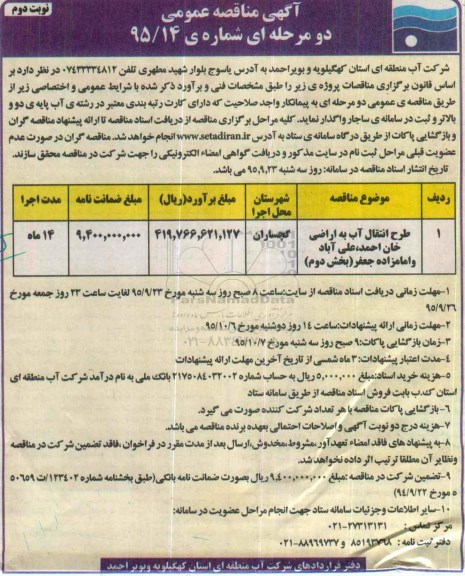 نوبت دوم
آگهی مناقصه عمومی
دو مرحله ای شماره ی ۹۵/۱۴
شرکت آب منطقه ای استان کهگیلویه و بویراحمد به آدرس یاسوج بلوار شهید مطهری تلفن ۰۷۴۳۳۳۳۴۸۱۲ در نظر دارد بر
اساس قانون برگزاری مناقصات پروژه ی زیر را طبق مشخصات فنی و برآورد ذکر شده با شرایط عمومی و اختصاصی زیر از
طریق مناقصه ی عمومی دو مرحله ای به پیمانکار واجد صلاحیت که دارای کارت رتبه بندی معتبر در رشته ی آب پایه ی دو و
بالاتر و ثبت در سامانه ی ساجار واگذار نماید. کلیه مراحل برگزاری مناقصه از دریافت اسناد مناقصه تا ارائه پیشنهاد مناقصه گران
و بازگشایی پاکات از طریق درگاه سامانه ی ستاد به آدرس www.setadiran.ir انجام خواهد شد. مناقصه گران در صورت عدم
عضویت قبلی مراحل ثبت نام در سایت مذکور و دریافت گواهی امضاء الکترونیکی را جهت شرکت در مناقصه محقق سازند.
تاریخ انتشار اسناد مناقصه در سامانه: روز سه شنبه ۹۵,۹,۲۳ می باشد.
ردیف موضوع مناقصه شهرستان محل اجرا مبلغ برآورد(ریال) مبلغ ضمانت نامه مدت اجرا
۱ طرح انتقال آب به اراضی خان احمد،علی آباد وامامزاده جعفر(بخش دوم) گچساران ۴۱۹,۷۶۶,۶۲۱,۱۲۷ ۹,۴۰۰,۰۰۰,۰۰۰ ۱۴ ماه
۱-مهلت زمانی دریافت اسناد مناقصه از سایت:ساعت ۸ صبح روز سه شنبه مورخ ۹۵/۹/۲۳ لغایت ساعت ۲۳ روز جمعه مورخ
۹۵/۹/۲۶
۲-مهلت زمانی ارائه پیشنهادات:ساعت ۱۴ روز دوشنبه مورخ ۹۵/۱۰/۶
۳-زمان بازگشایی پاکات:۹ صبح روز سه شنبه مورخ ۹۵/۱۰/۷
۴-مدت اعتبار پیشنهادات: ۳ ماه شمسی از تاریخ آخرین مهلت ارائه پیشنهادات
۵-هزینه خرید اسناد:مبلغ ۵,۰۰۰,۰۰۰ ریال به حساب شماره ۲۱۷۵۰۸۴۰۳۲۰۰۲ بانک ملی به نام درآمد شرکت آب منطقه ای
استان کد.ب بابت فروش اسناد مناقصه از طریق سامانه ستاد
۶- بازگشایی پاکات مناقصه با هر تعداد شرکت کننده صورت می گیرد.
۷-هزینه درج دو نوبت آگهی و اصلاحات احتمالی بعهده برنده مناقصه می باشد.
۸-به پیشنهاد های فاقد امضاء تعهدآور،مشروط،مخدوش،ارسال بعد از مدت مقرر در فراخوان ،فاقد تضمین شرکت در مناقصه
ونظایر آن مطلقا ترتیب اثر داده نخواهد شد.
۹-تضمین شرکت در مناقصه :مبلغ ۹,۴۰۰,۰۰۰,۰۰۰ ریال بصورت ضمانت نامه بانکی(طبق بخشنامه شماره ۱۲۳۴۰۲/ت ۵۰۶۵۹
ه مورخ ۹۴/۹/۲۲)
۱۰-سایر اطلاعات وجزئیات سامانه ستاد جهت انجام مراحل عضویت در سامانه:
مرکز تماس : ۰۲۱-۲۷۳۱۳۱۳۱
دفتر ثبت نامه : ۸۵۱۹۳۷۶۸ و ۸۸۹۶۹۷۳۷-۰۲۱
دفتر قراردادهای شرکت آب منطقه ای استان کهگیلویه وبویر احمد